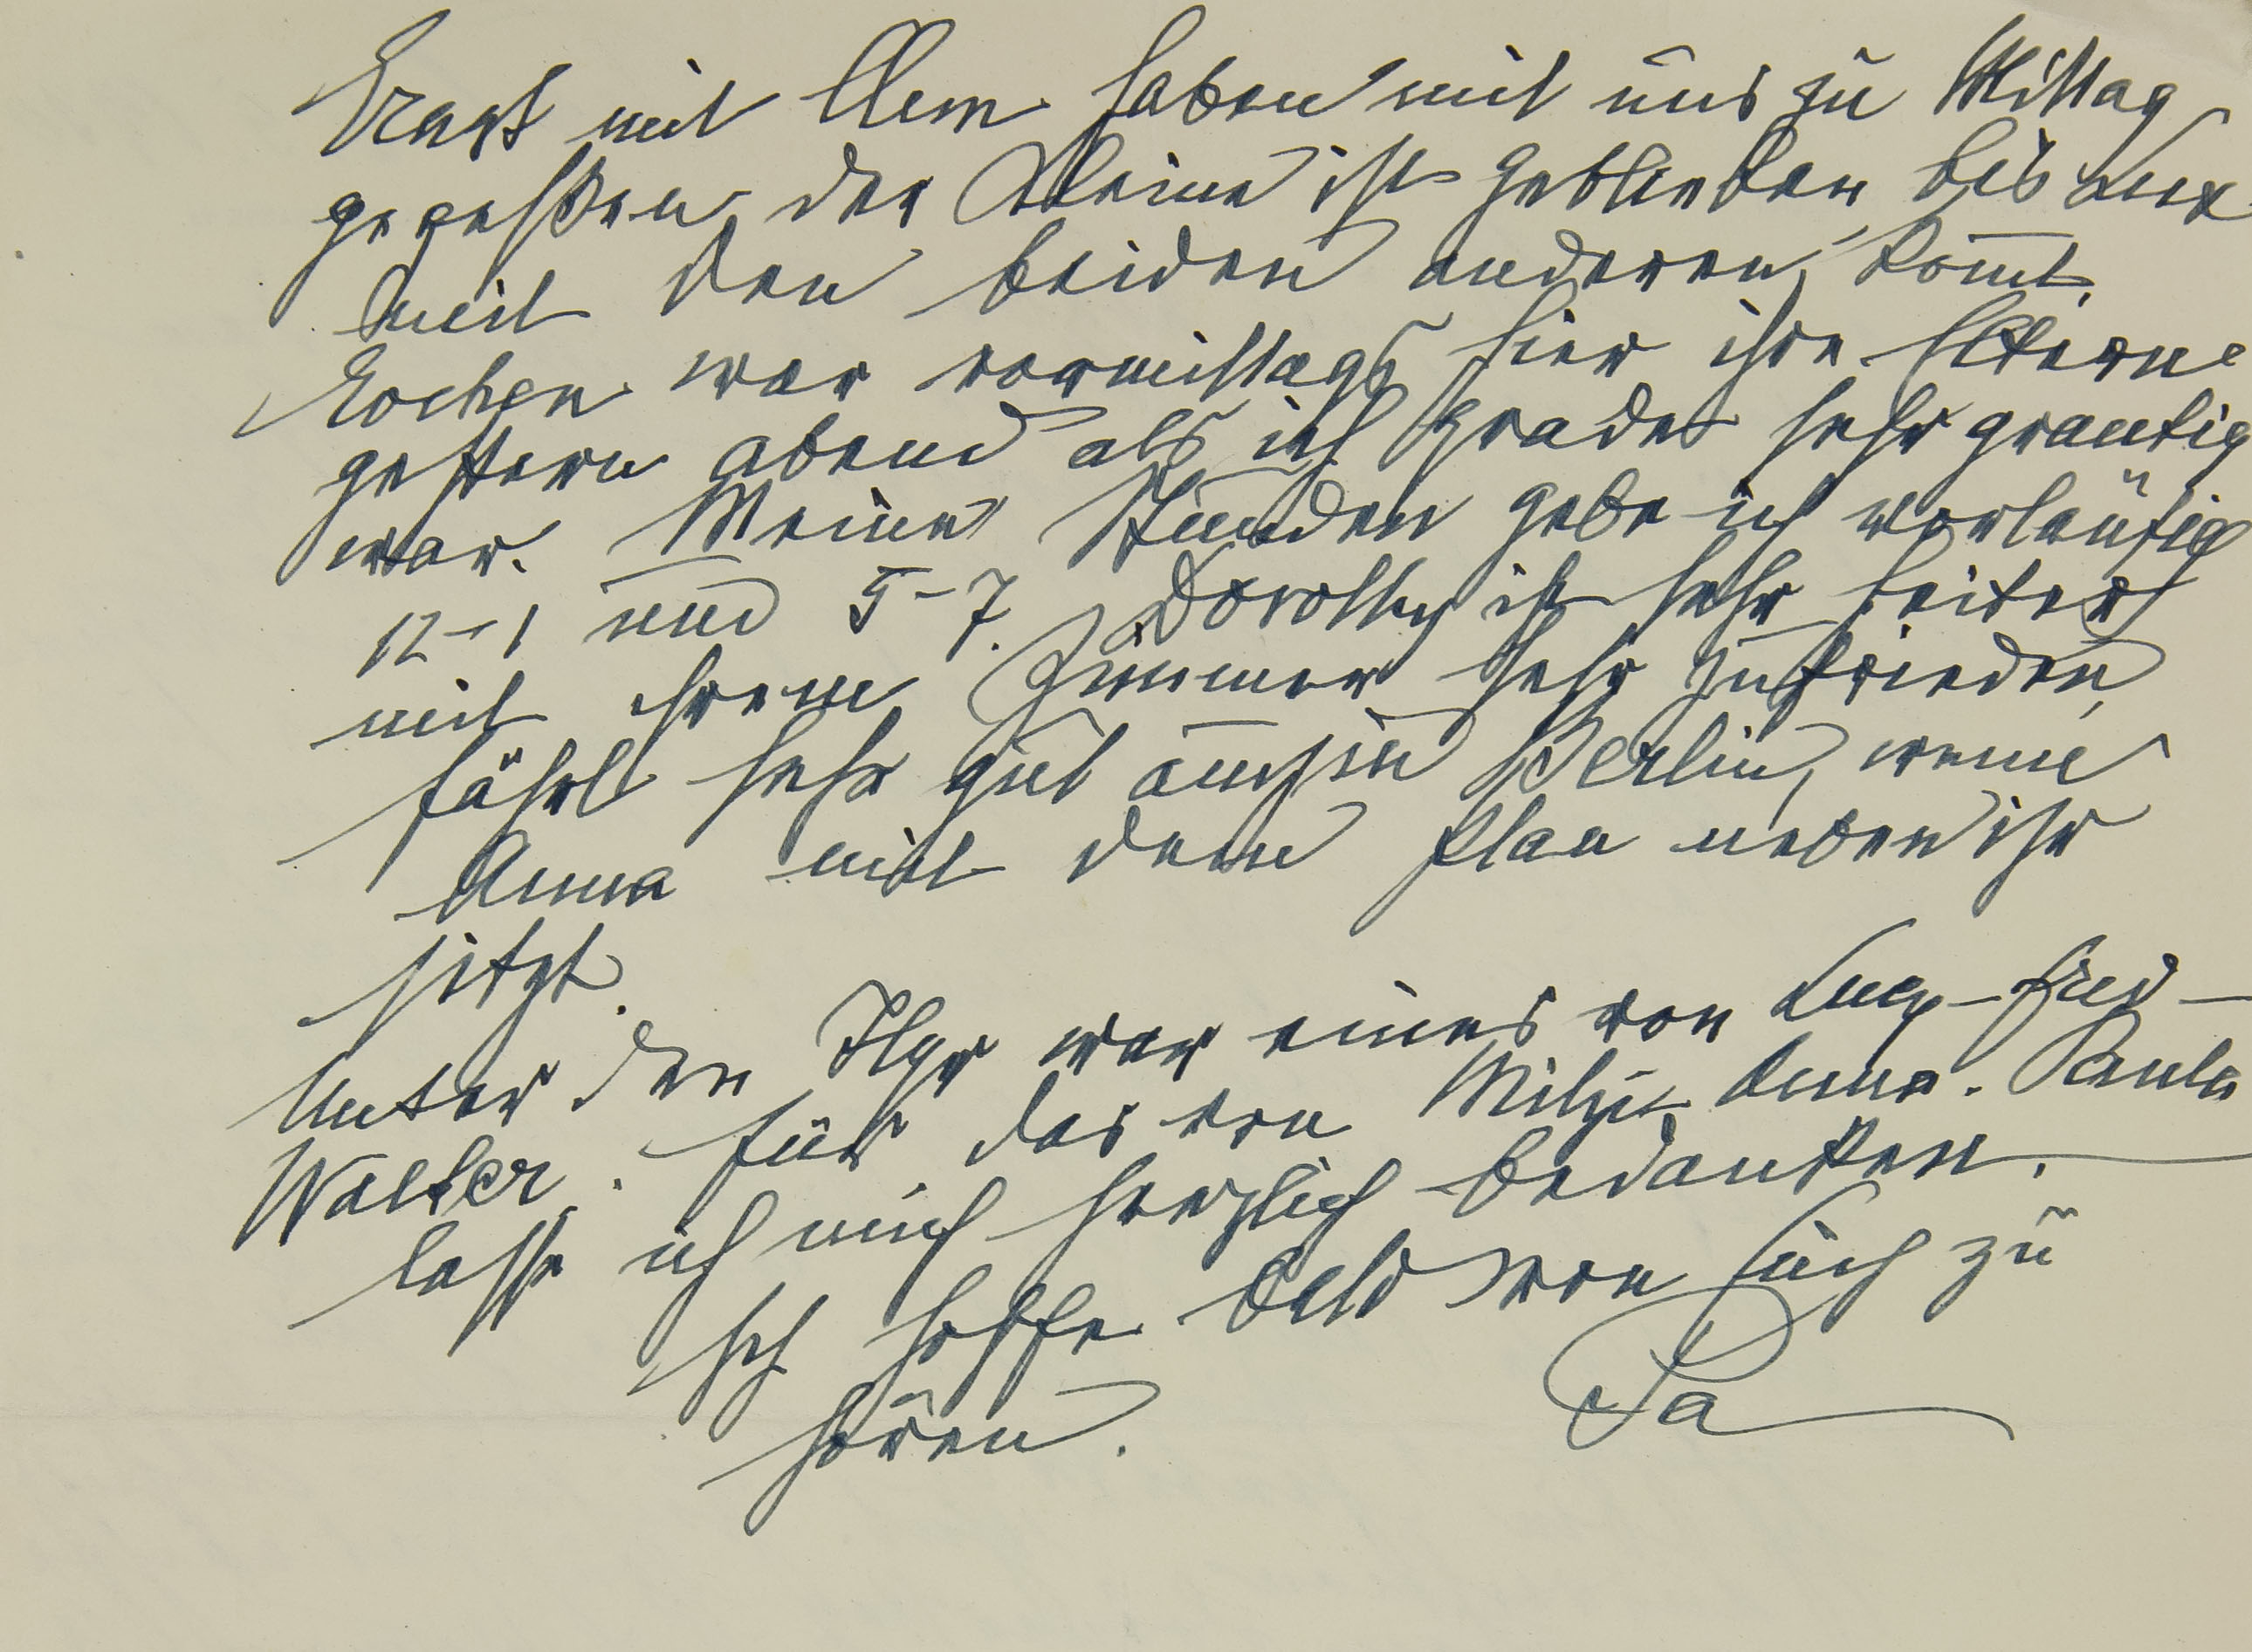 Ernst mit Clem. haben mit uns zu Mittag
gegeßen, der Kleine ist geblieben bis Lux
mit den beiden anderen kom̄t.
Eochen war vormittags hier ihre Eltern
gestern abend als ich grade sehr grantig
war. Meine Stunden gebe ich vorläufig
12–1 und 5–7. Dorothy ist sehr heiter
mit ihrem Zimmer sehr zufrieden,
fährt sehr gut auch in Berlin, wenn
Anna mit dem Plan neben ihr
sitzt.
Unter den Tlgr war eines von Lucy–Fred–
Walter. für das von Mitzi Anna. Paula
lasse ich mich herzlich bedanken.
Ich hoffe bald von Euch zu
hören.
Pa